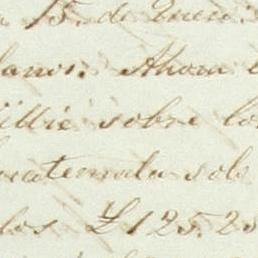 15. de Enero.
lanos. Ahora
illié sobre lo
uatemala sob
los £125.25